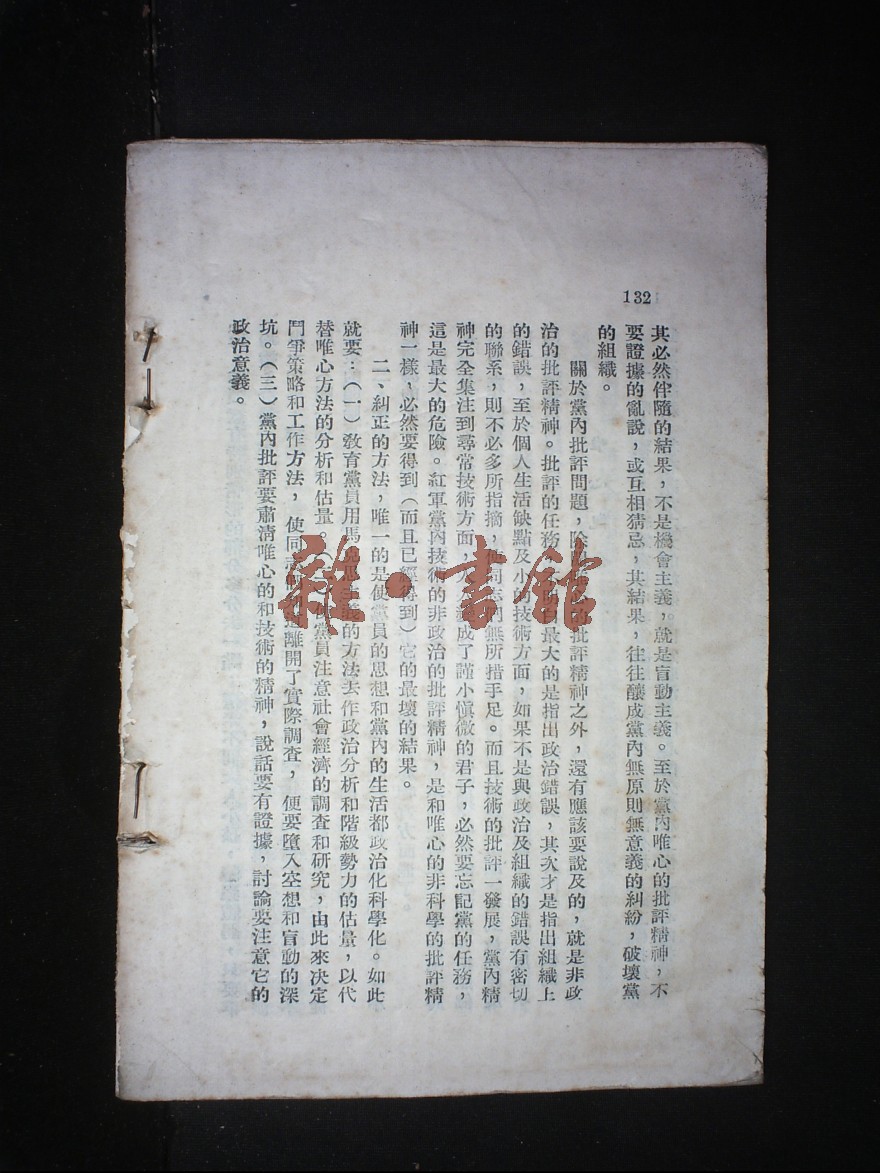 132
其必然伴隨的結果，不是機會主義，就是盲動主義。至於黨內唯心的批評精神，不
要證據的亂說，或互相猜忌，其結果，往往釀成黨內無原則無意義的糾紛，破壞黨
的組織。
關於黨內批評問題，除 批評精神之外，還有應該要說及的，就是非政
治的批評精神。批評的任務 最大的是指出政治錯誤，其次才是指出組織上
的錯誤，至於個人生活缺點及小的技術方面，如果不是與政治及組織的錯誤有密切
的聯系，則不必多所指摘，使同志們無所措手足。而且技術的批評一發展，黨內精
神完全集注到尋常技術方面， 成了謹小慎微的君子，必然要忘記黨的任務，
這是最大的危險。紅軍黨內技術的非政治的批評精神，是和唯心的非科學的批評精
神一樣，必然要得到（而且已經得到）它的最壞的結果。
二、糾正的方法，唯一的是使黨員的思想和黨內的生活都政治化科學化。如此
就要：（一）教育黨員用馬 的方法去作政治分析和階級勢力的估量，以代
替唯心方法的分析和估量。 黨員注意社會經濟的調查和研究，由此來決定
鬥爭策略和工作方法，使同志 離開了實際調查，便要墮入空想和盲動的深
坑。（三）黨內批評要肅清唯心的和技術的精神，說話要有證據，討論要注意它的
政治意義。
雜·書館